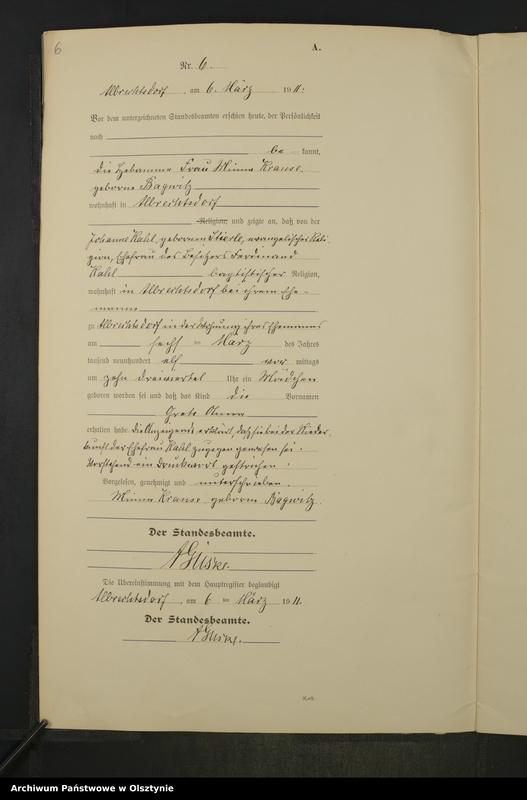 6
A.
Nr. 6.
Albrechtsdorf, am 6. März 1911.
Vor dem unterzeichneten Standesbeamten erschien heute, der Persönlichkeit
nach
be kannt,
die Hebamme Frau Minna Krause,
geborne Bagwitz
wohnhaft in Albrechtsdorf
Religion, und zeigte an, daß von der
Johanne Kahl, gebornen Stierle, evangelischer Reli-
gion, Ehefrau des Besitzers Ferdinand
Kahl baptistischer Religion,
wohnhaft in Albrechtsdorf bei ihrem Ehe-
manne
zu Albrechtsdorf in der Wohnung ihres Ehemannes
am sechs ten März des Jahres
tausend neunhundert elf vor mittags
um zehn dreiviertel Uhr ein Mädchen
geboren worden sei und daß das Kind die Vornamen
Grete Anna
erhalten habe. Die Anzeigende erklärt, daß sie bei der Nieder-
kunft der Ehefrau Kahl zugegen gewesen sei.
Vorstehend ein Druckwort gestrichen.
Vorgelesen, genehmigt und unterschrieben.
Minna Krause geborne Bagwitz.
Der Standesbeamte.
Die Übereinstimmung mit dem Hauptregister beglaubigt
Albrechtsdorf, am 6 ten März 1911.
Der Standesbeamte.
Archiwum Państwowe w Olsztynie